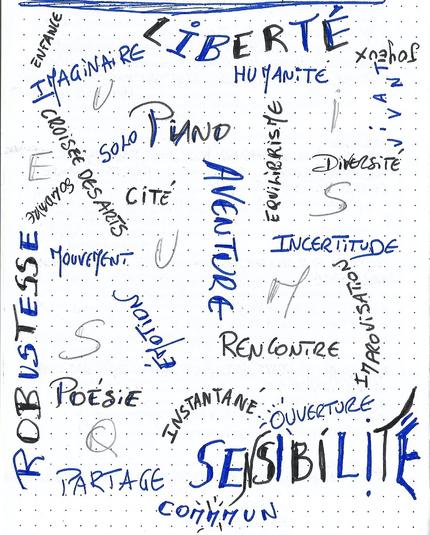 LIBERTÉ
ENFANCE
IMAGINAIRE
JOYEUX
HUMANITÉ
VIVANT
U
I
CROISÉE DES ARTS
SOLO
PIANO
EQUILIBRISME
DIVERSITÉ
E
S
CITÉ
AVENTURE
MOUVEMENT
U
INCERTITUDE
ROBUSTESSE
M
IMPROVISATION
ÉMOTION
S
RENCONTRE
POÉSIE
INSTANTANÉ
OUVERTURE
Q
SENSIBILITÉ
PARTAGE
COMMUN